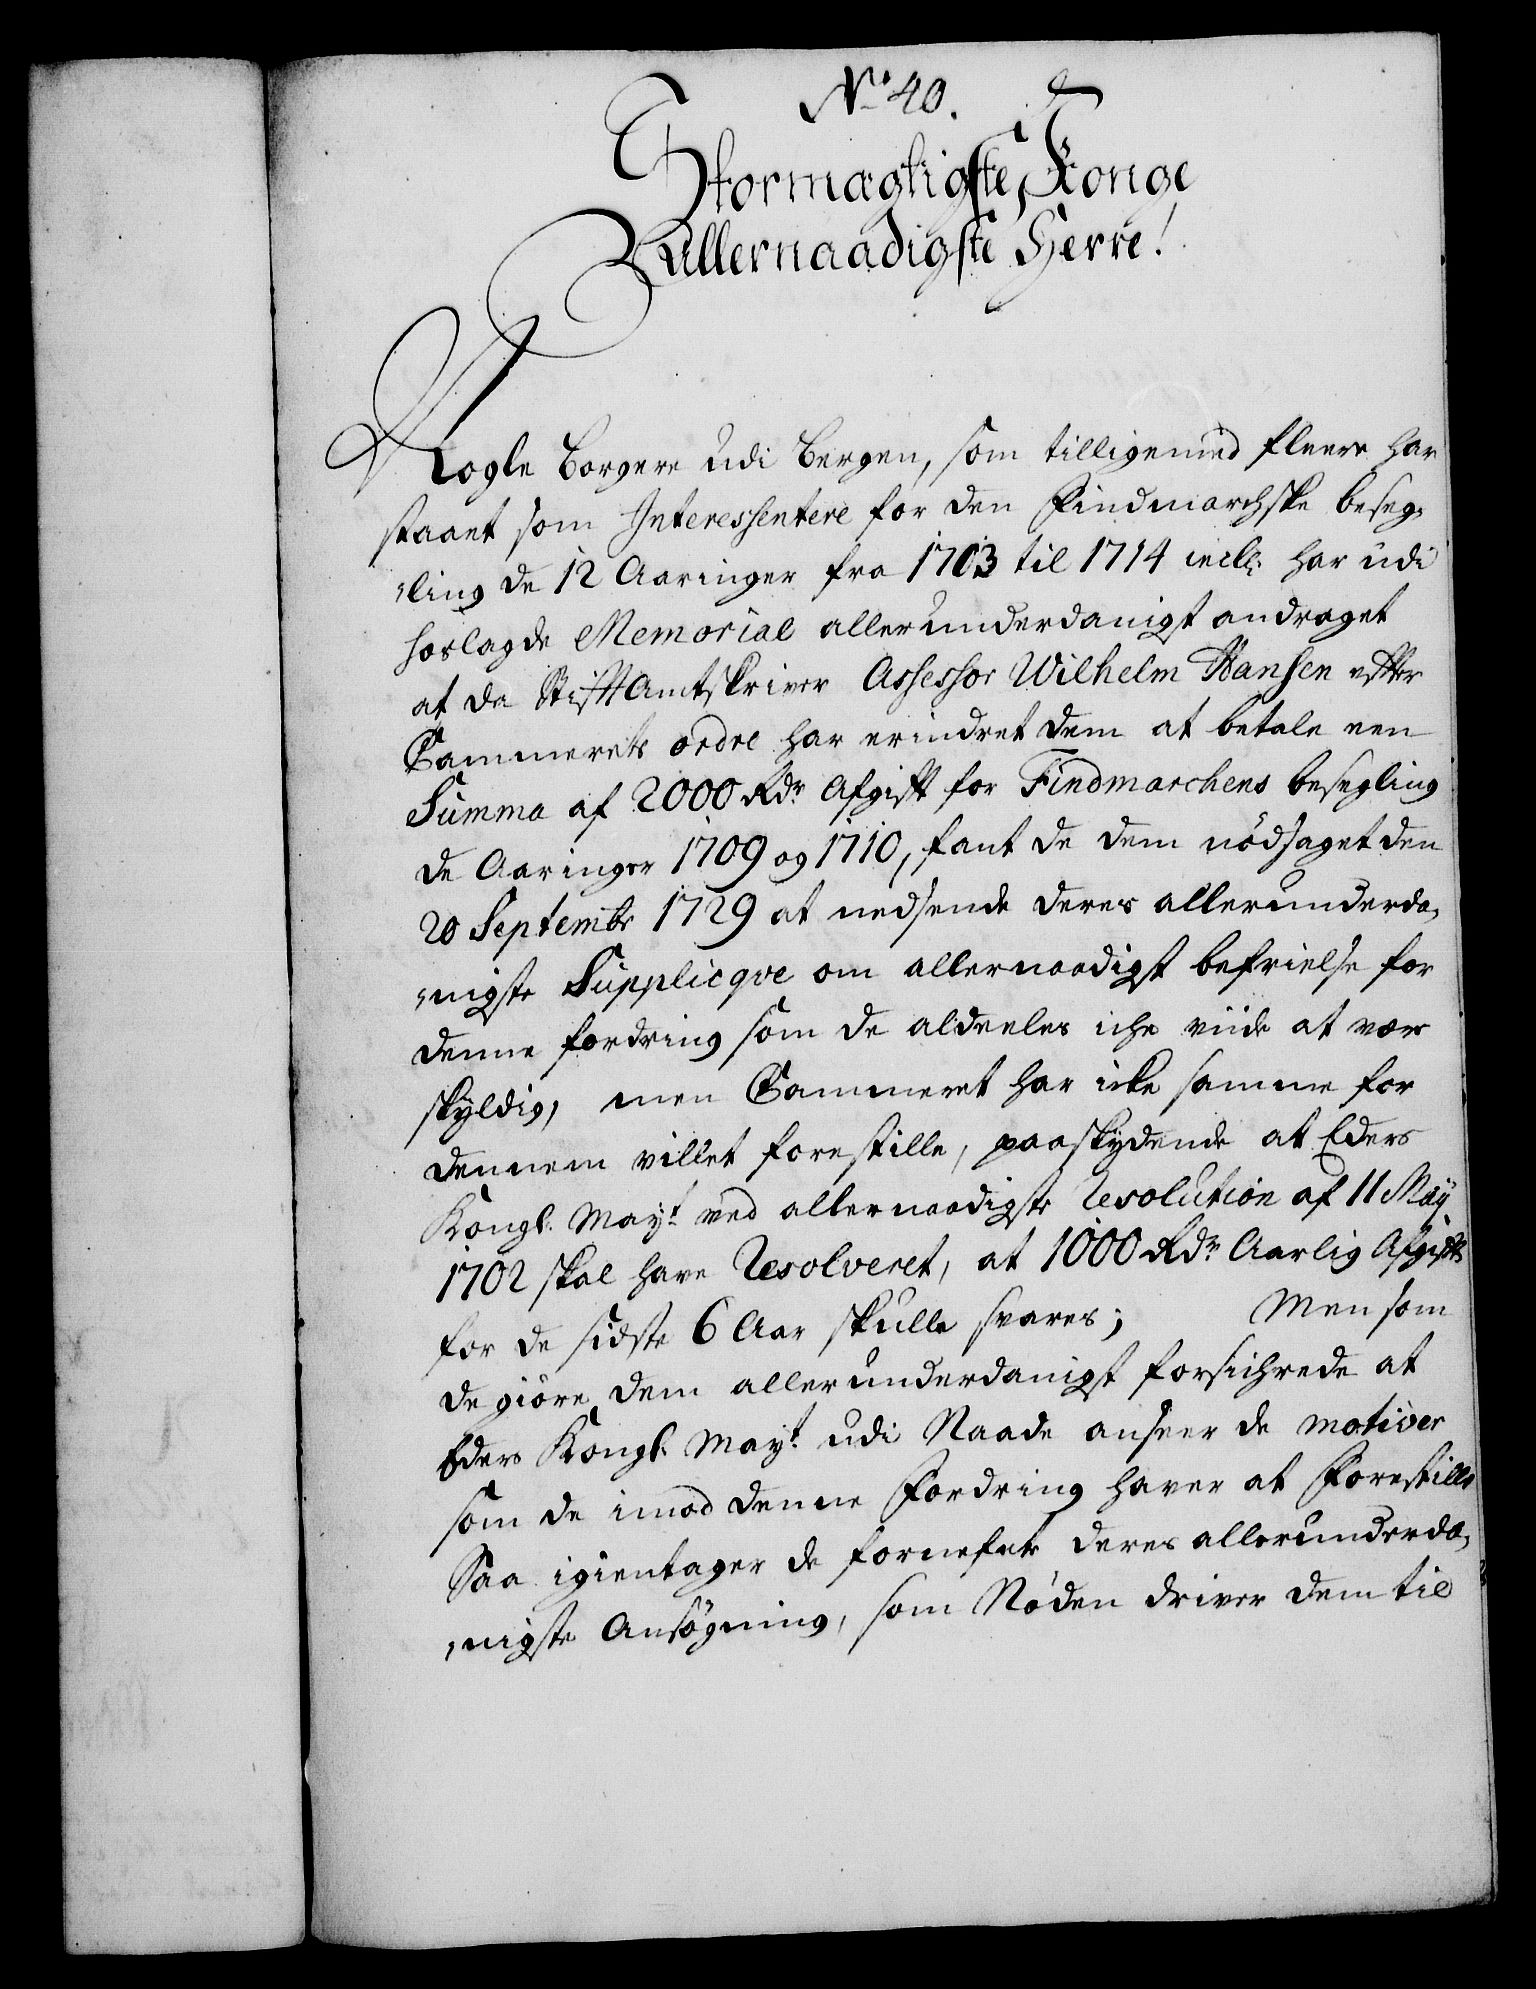 No 40.
Stormægtigste Konge
Allernaadigste Herre!
Nogle Borgere udi Bergen, som tilligemed fleere har
staaet som Interessentere for den Findmarchske beseg-
ling de 12 Aaringer fra 1703 til 1714 incl: har udi
hoslagde Memorial allerunderdanigst andraget
at da Stifft Amtskriver Assessor Wilhelm Hansen efter
Cammerets ordre har erindret dem at betale een
Summa af 2000 Rdr Afgifft for Findmarchens besegling
de Aaringer 1709 og 1710, fant de dem nödsaget den
20 Septembr 1729 at nedsende deres allerunderda-
nigste Supplicqve om allernaadigst befrielse for
denne fordring som de aldeeles iche viide at være
skÿldig, men Cammeret har icke samme for
dennem villet forestille, paaskydende at Eders
Kongl. Mayt ved allernaadigste Resolution af 11 Maÿ
1702 skal have Resolveret, at 1000 Rdr Aarlig Afgifft
for de sidste 6 Aar skulle svares; Men som
de giöre dem allerunderdanigst forsichrede at
Eders Kongl. Mayt udi Naade anseer de motiver
som de imod denne Fordring haver at Forestille
Saa igientager de fornefnte deres allerunderda-
nigste Ansögning, som Nöden driver dem til